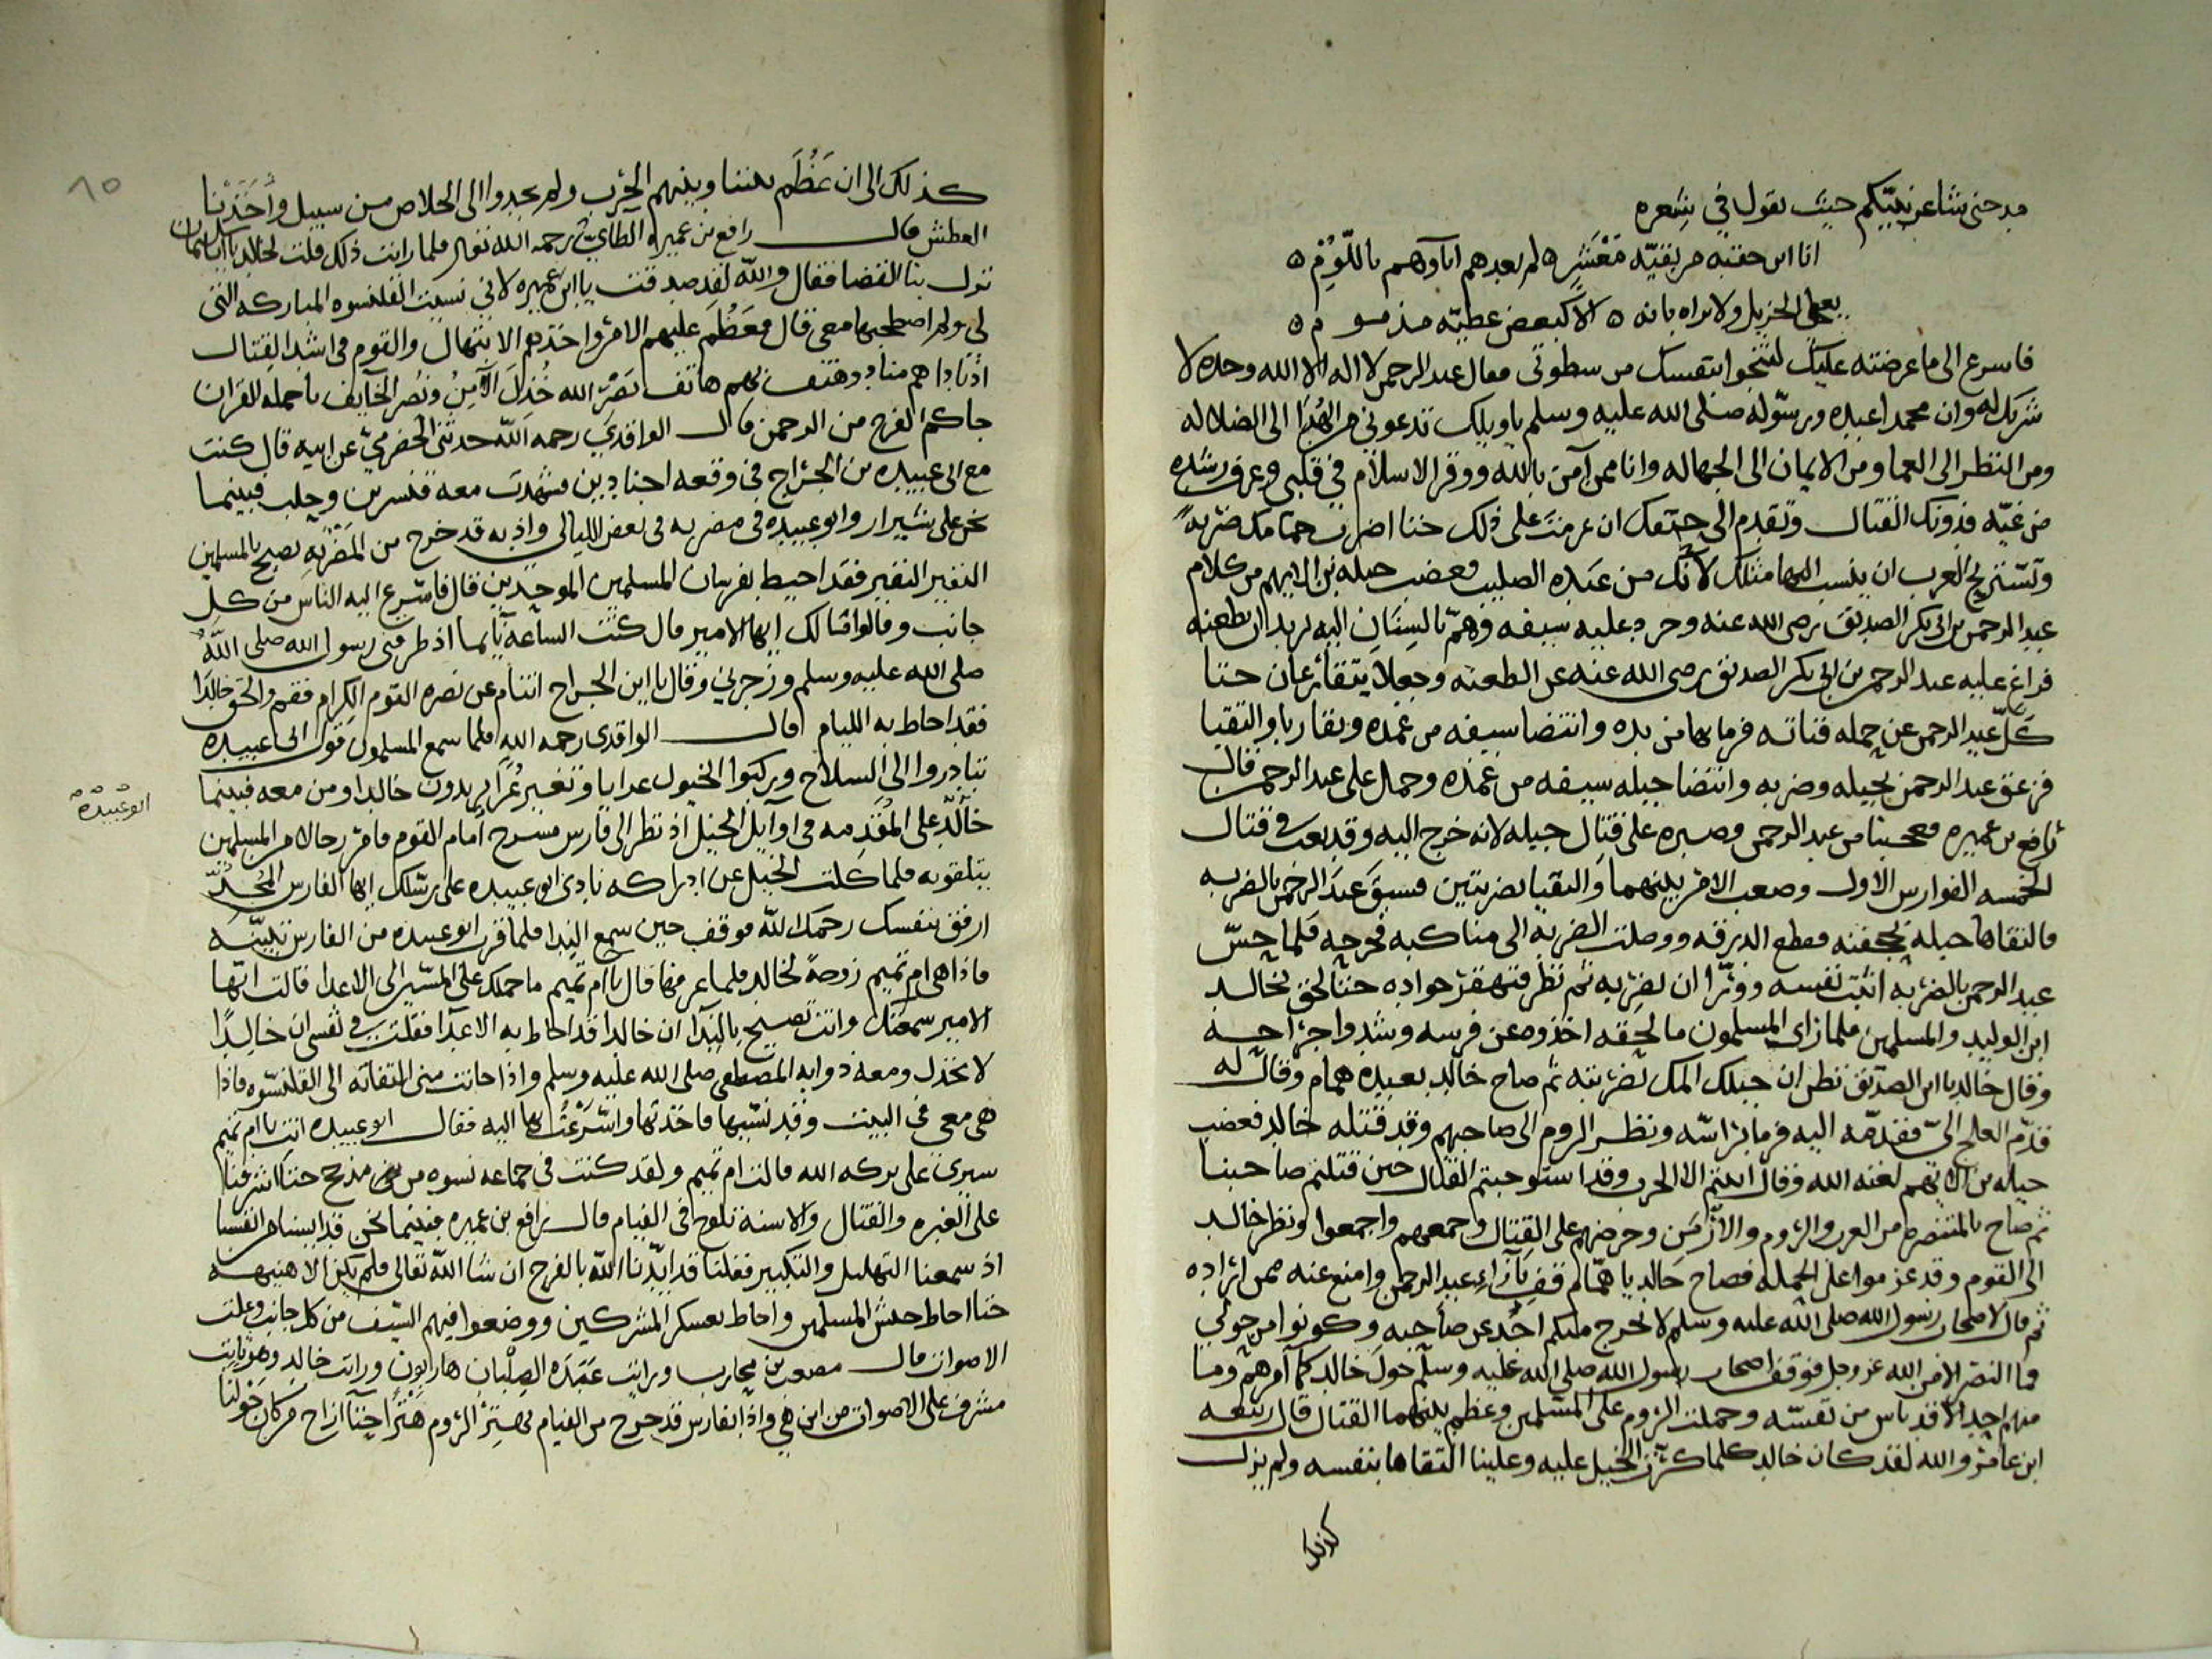 مدحنى شاعر نبيّكم حيث يقول في شعره
انا ابن حفنه من بقيّه مَعْشَرٍ ه لم يعدهم اباوهم باللّوُمِ ه
يعطى الجزيل ولا يراه بانه ه الا كبعض عطيّه مذموم ه
فاسرع الى ما عرضته عليك لتنجوا بنفسك من سطوتى فقال عبد الرحمن لا اله الا الله وحده لا
شريك له وان محمدا عبده ورسوله صلى الله عليه وسلم ياويلك تدعونى من الهُدَا الى الضلاله
ومن النظر الى العما ومن الايمان الى الجهاله وانا ممن آمن بالله ووقر الاسلام في قلبى وعرف رشده
من غيّه فدونك القتال وتقدم الى حتفك ان عزمت على ذلك حتا اضربك ضربةً
وتستريح العرب ان ينسب اليها مثلك لانك من عَبَده الصليب فغضب جبله بن الايهم من كلام
عبد الرحمن بن ابى بكر الصديق رضى الله عنه وجرد عليه سيفه وهمّ بالسِنَانِ اليه يريد ان يطعنه
فراغ عليه عبد الرحمن بن ابى بكر الصديق رضى الله عنه عن الطعنه وجعلا يتقارعان حتا
كَلّ عبد الرحمن عن حمله قناته فرما بها من يده وانتضا سيفه من غمده وتقاربا والتقيا
فزعق عبد الرحمن بجبله وضربه وانتضا جبله سيفه من غمده وحمل على عبد الرحمن قال
رافع بن عميره فعجبنا من عبد الرحمن وصبره على قتال جبله لانه خرج اليه وقد تعب في قتال
الخمسه الفوارس الاول وصعب الامر بينهما والتقيا بضربتين فسبقَ عبدَ الرحمن بالضربه
فالتقاها جبله بجحفته فقطع الدرقه ووصلت الضربه الى مناكبه فجرحه فلما حسّ
عبد الرحمن بالضربه اثبت نفسه ووُرّا ان لضربه ثم نظر فتقهقر جواده حتا لحق بخالد
ابن الوليد والمسلمين فلما راى المسلمون ما لحقه اخذوه عن فرسه وشدوا جراحه
وقال خالد يا ابن الصدّيق نظر ان جبلك المك بضربته ثم صاح خالد بعبده همام وقال له
قدّم العلج الىّ فقدمّه اليه فرما براسه ونظر الروم الى صاحبهم وقد قتله خالد فغضب
جبله بن الايهم لعنه الله وقال ابيتم الا الحرب وقد استوجبتم القتال حين قتلتم صاحبنا
ثم صاح بالمتنصره من العرب والروم والارمن وحرضهم على القتال وجمعهم واجمعوا ونظر خالد
الى القوم وقد عزموا على الحمله فصاح خالد يا همّام قف بازاء عبد الرحمن وامنع عنه ممن اراده
ثم قال لاصحاب رسول الله صلى الله عليه وسلم لا يخرج منكم احد عن صاحبه وكونوا من حولى
فما النصر الا من الله عز وجل فوقف اصحاب رسول الله صلى الله عليه وسلم حول خالد كما امرهم وما
منهم احد الا قد ياس من نفسه وحملت الروم على المسلمين وعظم بينهما القتال قال ربيعه
ابن عامر والله لقد كان خالد كلما كثرت الخيل عليه وعلينا التقاها بنفسه ولم يزل
كذلك
٨٥
كذلك الى ان عَظُمَ بيننا وبينهم الحرب ولم يجدوا الى الخلاص من سبيل وأخَذَنْنا
العطش قال رافع بن عميره الطّايىّ رحمه الله تعالى فلما رايت ذلك قلت لخالد يا ابا سليمان
نزل بنا القضا فقال والله لقد صدقت يا ابن عميره لانى نسيت القلنسوه المباركه التى
لى ولم اصطحبها معى قال فعَظُمَ عليهم الامر واخذهم الانتهال والقوم في اشد القتال
اذ ناداهم مناد وهتف بهم هاتف نَصْرُ الله خُذلَ الآمِنُ ونُصُر الخايف يا حمله القران
جاكم الفرج من الرحمن قال الواقدى رحمه الله حدثنى الحضرمىّ عن ابيه قال كنت
مع ابى عبيده بن الجراح في وقعه اجنادين وشهدت معه قنسرين وحلب فبينما
نحن على شيزار وابو عبيده في مضربه في بعض الليالى واذ به قد خرج من المَضْربِه يصيح بالمسلمين
النفير النفير فقد احيط بفرسان المسلمين الموحدين قال فاسرع اليه الناس من كلِ
جانب وقالوا مالك ايها الامير قال كنت الساعه نايما اذ طرقنى رسول الله صلى اللهُ
صلى الله عليه وسلم وزجرنى وقال يا ابن الجراح اتنام عن نصره القوم الكرام فقم والحق خالدا
فقد احاط به الليام قال الواقدى رحمه الله فلما سمع المسلمون قول ابى عبيده
تبادروا الى السلاح وركبوا الخيول عرايا وتغير غرا يريدون خالدا ومن معه فبينما
خالد على المُقَدِمه في اوايل الخيل اذ نظر الى فارس مسرح امام القوم فامر رجالا من المسلمين
ابو عبيدة
يتلقوه فلما كلت الخيل عن ادراكه نادى ابو عبيده على رسلك ايها الفارس المُجُدّ
ارفق بنفسك رحمك الله فوقف حين سمع الندا فلما قرب ابو عبيده من الفارس تبيّنه
فاذا هى ام تميم زوجة لخالد فلما عرفها قال يا ام تميم ما حملك على المسير الى الاعدا قالت ايها
الامير سمعتك وانت تصيح بالندا ان خالدا قد احاط به الاعدا فقلت في نفسى ان خالدًا
لا يخذل ومعه ذوابه المصطفى صلى الله عليه وسلم واذا حانت منى التفاته الى القلنسوه فاذا
هى معى في البيت وقد نسيها فاخذتها واسرعت بها اليه فقال ابو عبيده انت يا ام تميم
سيرى على بركه الله قالت ام تميم ولقد كنت في جماعه نسوه من مذحج حتا اشرفنا
على الغبره والقتال والاسنه تلوح في القيام قال رافع بن عميره فبينما نحن قد ايسنا من انفسنا
اذ سمعنا التهليل والتكبير فقلنا قد ايّدنا الله بالفرج ان شا الله تعالى فلم يكن الا هنيهه
حتا احاط جيش المسلمين واحاط بعسكر المشركين ووضعوا فيهم السيف من كل جانب وعلت
الاصوات قال مصعب بن محارب ورايت عَبَدَه الصلبان هاربون ورايت خالد وهو ثابت
مشرف على الاصوات من اين هى واذا بفارس قد خرج من القيام يهتز الروم هَبرًا حتا ازاح من كان حَوْلنا